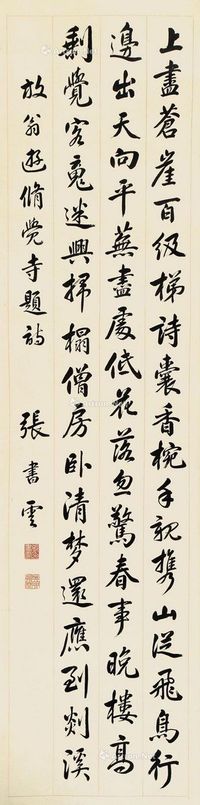 上盡蒼崖百級梯詩囊香椀手親携山從飛鳥行
邊出天向平蕪盡處低花落忽驚春事晚樓高
剩覺客魂迷興掃榻僧房臥清梦還應到剡溪
放翁遊脩覺寺題詩
張書雲